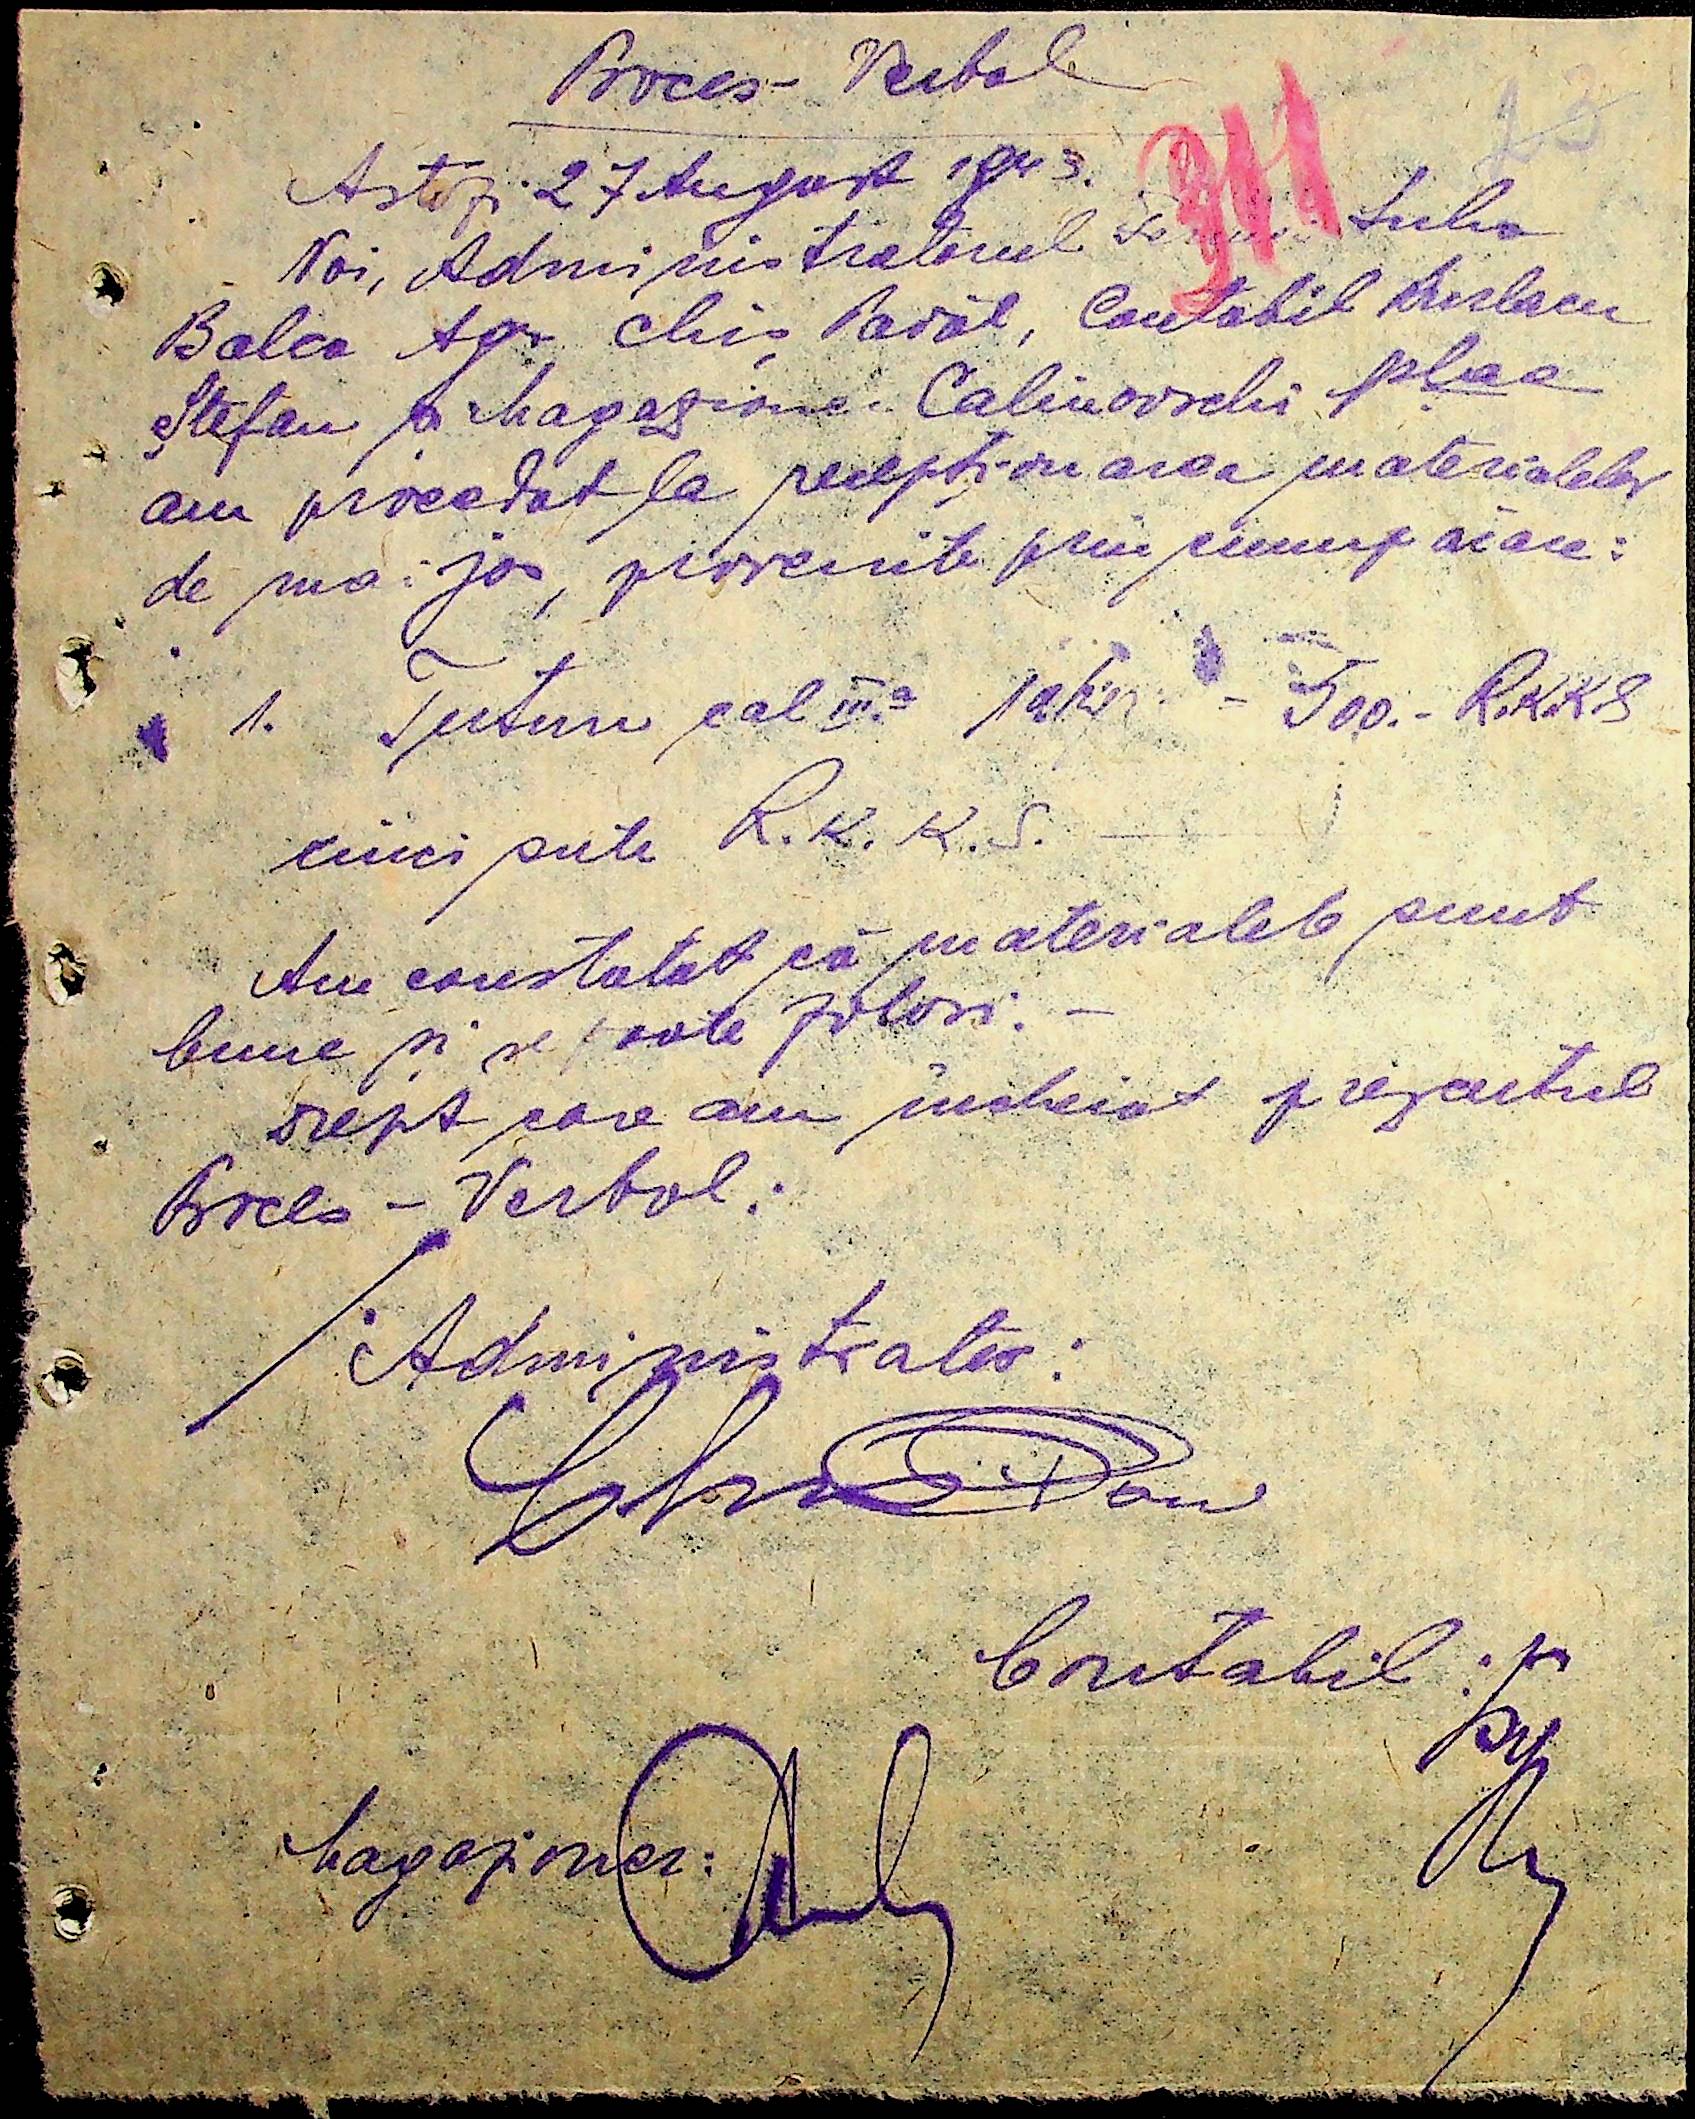 Proces - Verbal
911
Astăzi 27 August 1943.
Noi, Administratorul Fermei Suha
Balca Agr. Chiș Pavăl, Contabil
Ștefan și Magazioner Calinovschi
am procedat la recepționarea materialelor
de mai jos, provenite prin cumpărare:
1. Tutun cal III.a 1 - 500.- R.K.K.S
cinci sute R.K.K.S.
Am constatat că materialele sunt
bune și se poate folosi. -
Drept care am încheiat prezentul
Proces - Verbal.
Administrator:
Contabil:
Magazioner: